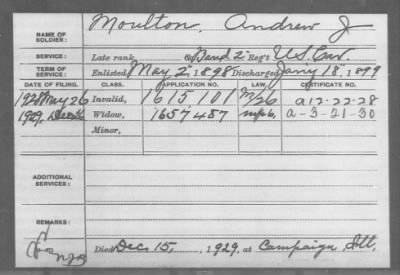 NAME OF SOLDIER: Moulton, Andrew J
SERVICE: Late rank, Band 2" Reg't U.S. Cav.
TERM OF SERVICE: Enlisted May 2" 1898 Discharged Jan'y 18", 1899
DATE OF FILING. CLASS. APPLICATION NO. LAW. CERTIFICATE NO.
1928 May 26 Invalid, 1615101 a-12-22-28
1929, Dec Widow, 1657487 a-3-21-30
Minor,
ADDITIONAL SERVICES:
REMARKS:
Died Dec. 15, 1929, at Campaign, Ill.